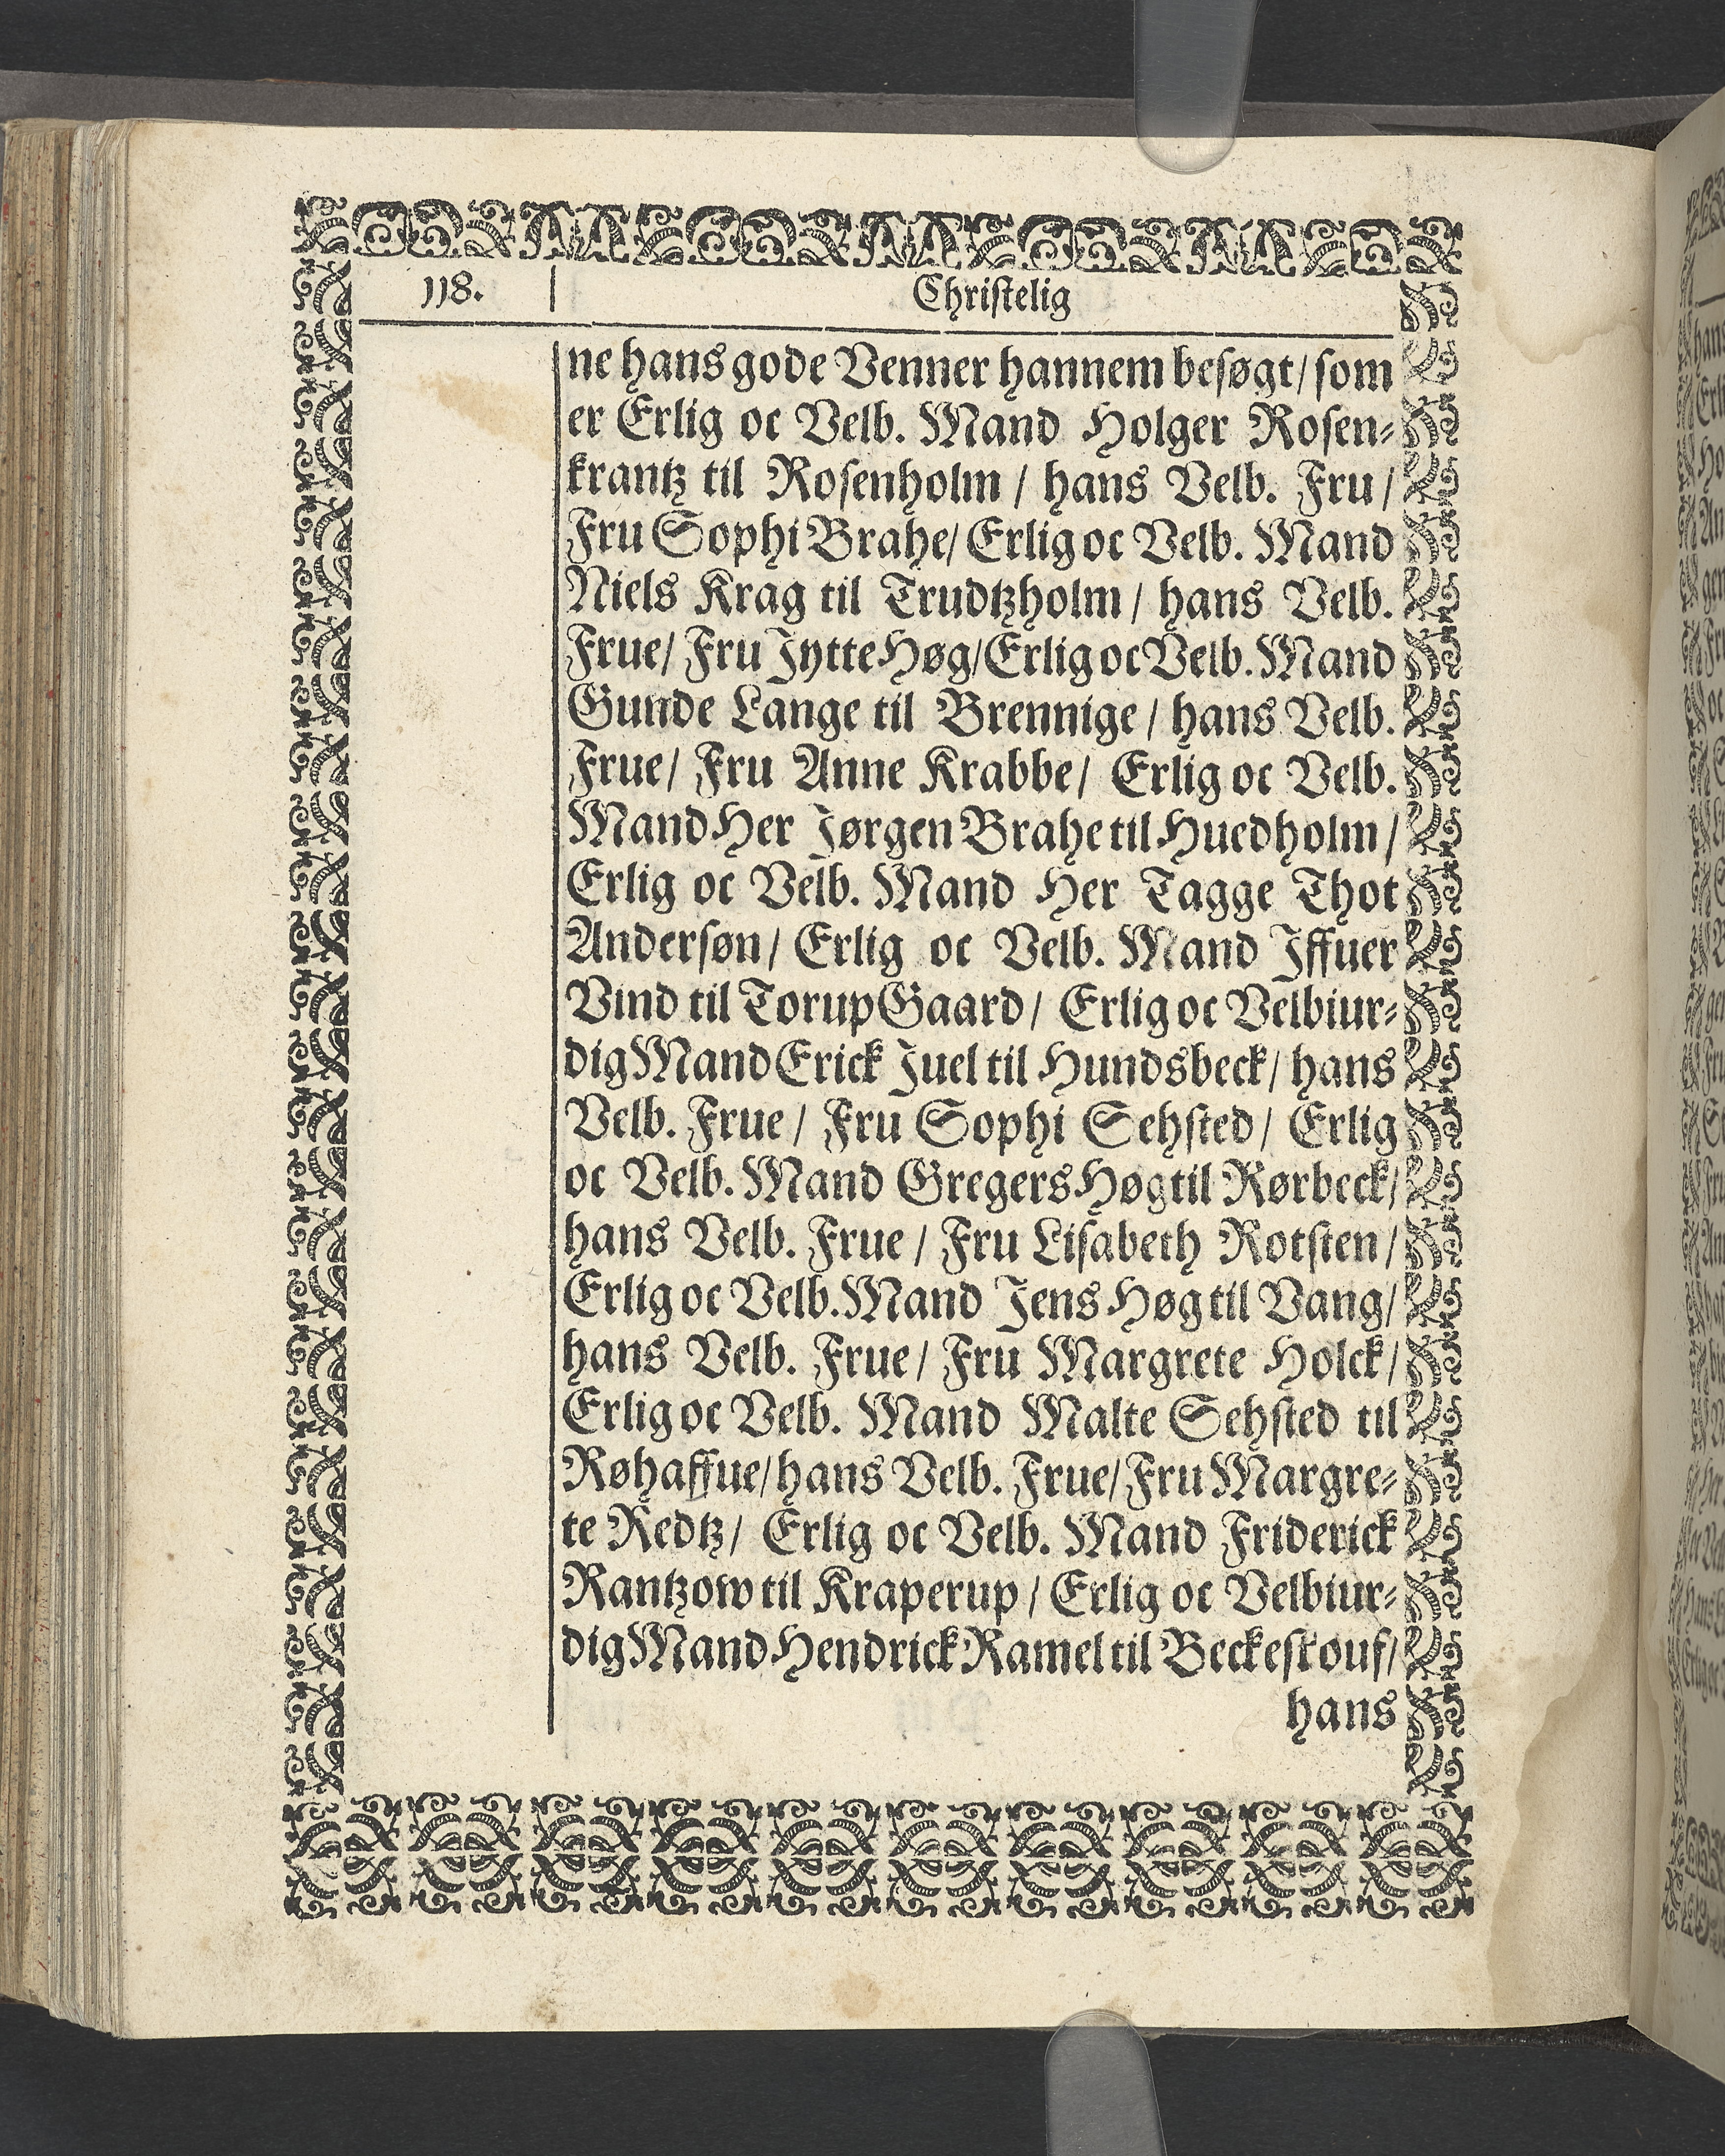 118.
Christelig
ne hans gode Venner hannem besøgt/ som
er Erlig oc Velb. Mand Holger Rosen-
krantz til Rosenholm / hans Velb. Fru/
Fru Sophi Brahe/ Erlig oc Velb. Mand
Niels Krag til Trudtzholm / hans Velb.
Frue/ Fru Jytte Høg/ Erlig oc Velb. Mand
Gunde Lange til Brennige / hans Velb.
Frue/ Fru Anne Krabbe/ Erlig oc Velb.
Mand Her Jørgen Brahe til Huedholm /
Erlig oc Velb. Mand Her Tagge Thot
Andersøn/ Erlig oc Velb. Mand Iffuer
Vind til Torup Gaard/ Erlig oc Velbiur-
dig Mand Erick Juel til Hundsbeck/ hans
Velb. Frue / Fru Sophi Sehsted/ Erlig
oc Velb. Mand Gregers Høg til Rørbeck/
hans Velb. Frue / Fru Lisabeth Rotsten /
Erlig oc Velb. Mand Jens Høg til Vang/
hans Velb. Frue / Fru Margrete Holck/
Erlig oc Velb. Mand Malte Sehsted til
Røhaffue/ hans Velb. Frue/ Fru Margre-
te Redtz/ Erlig oc Velb. Mand Friderick
Rantzow til Kraperup / Erlig oc Velbiur-
dig Mand Hendrick Ramel til Beckeskouf/
hans